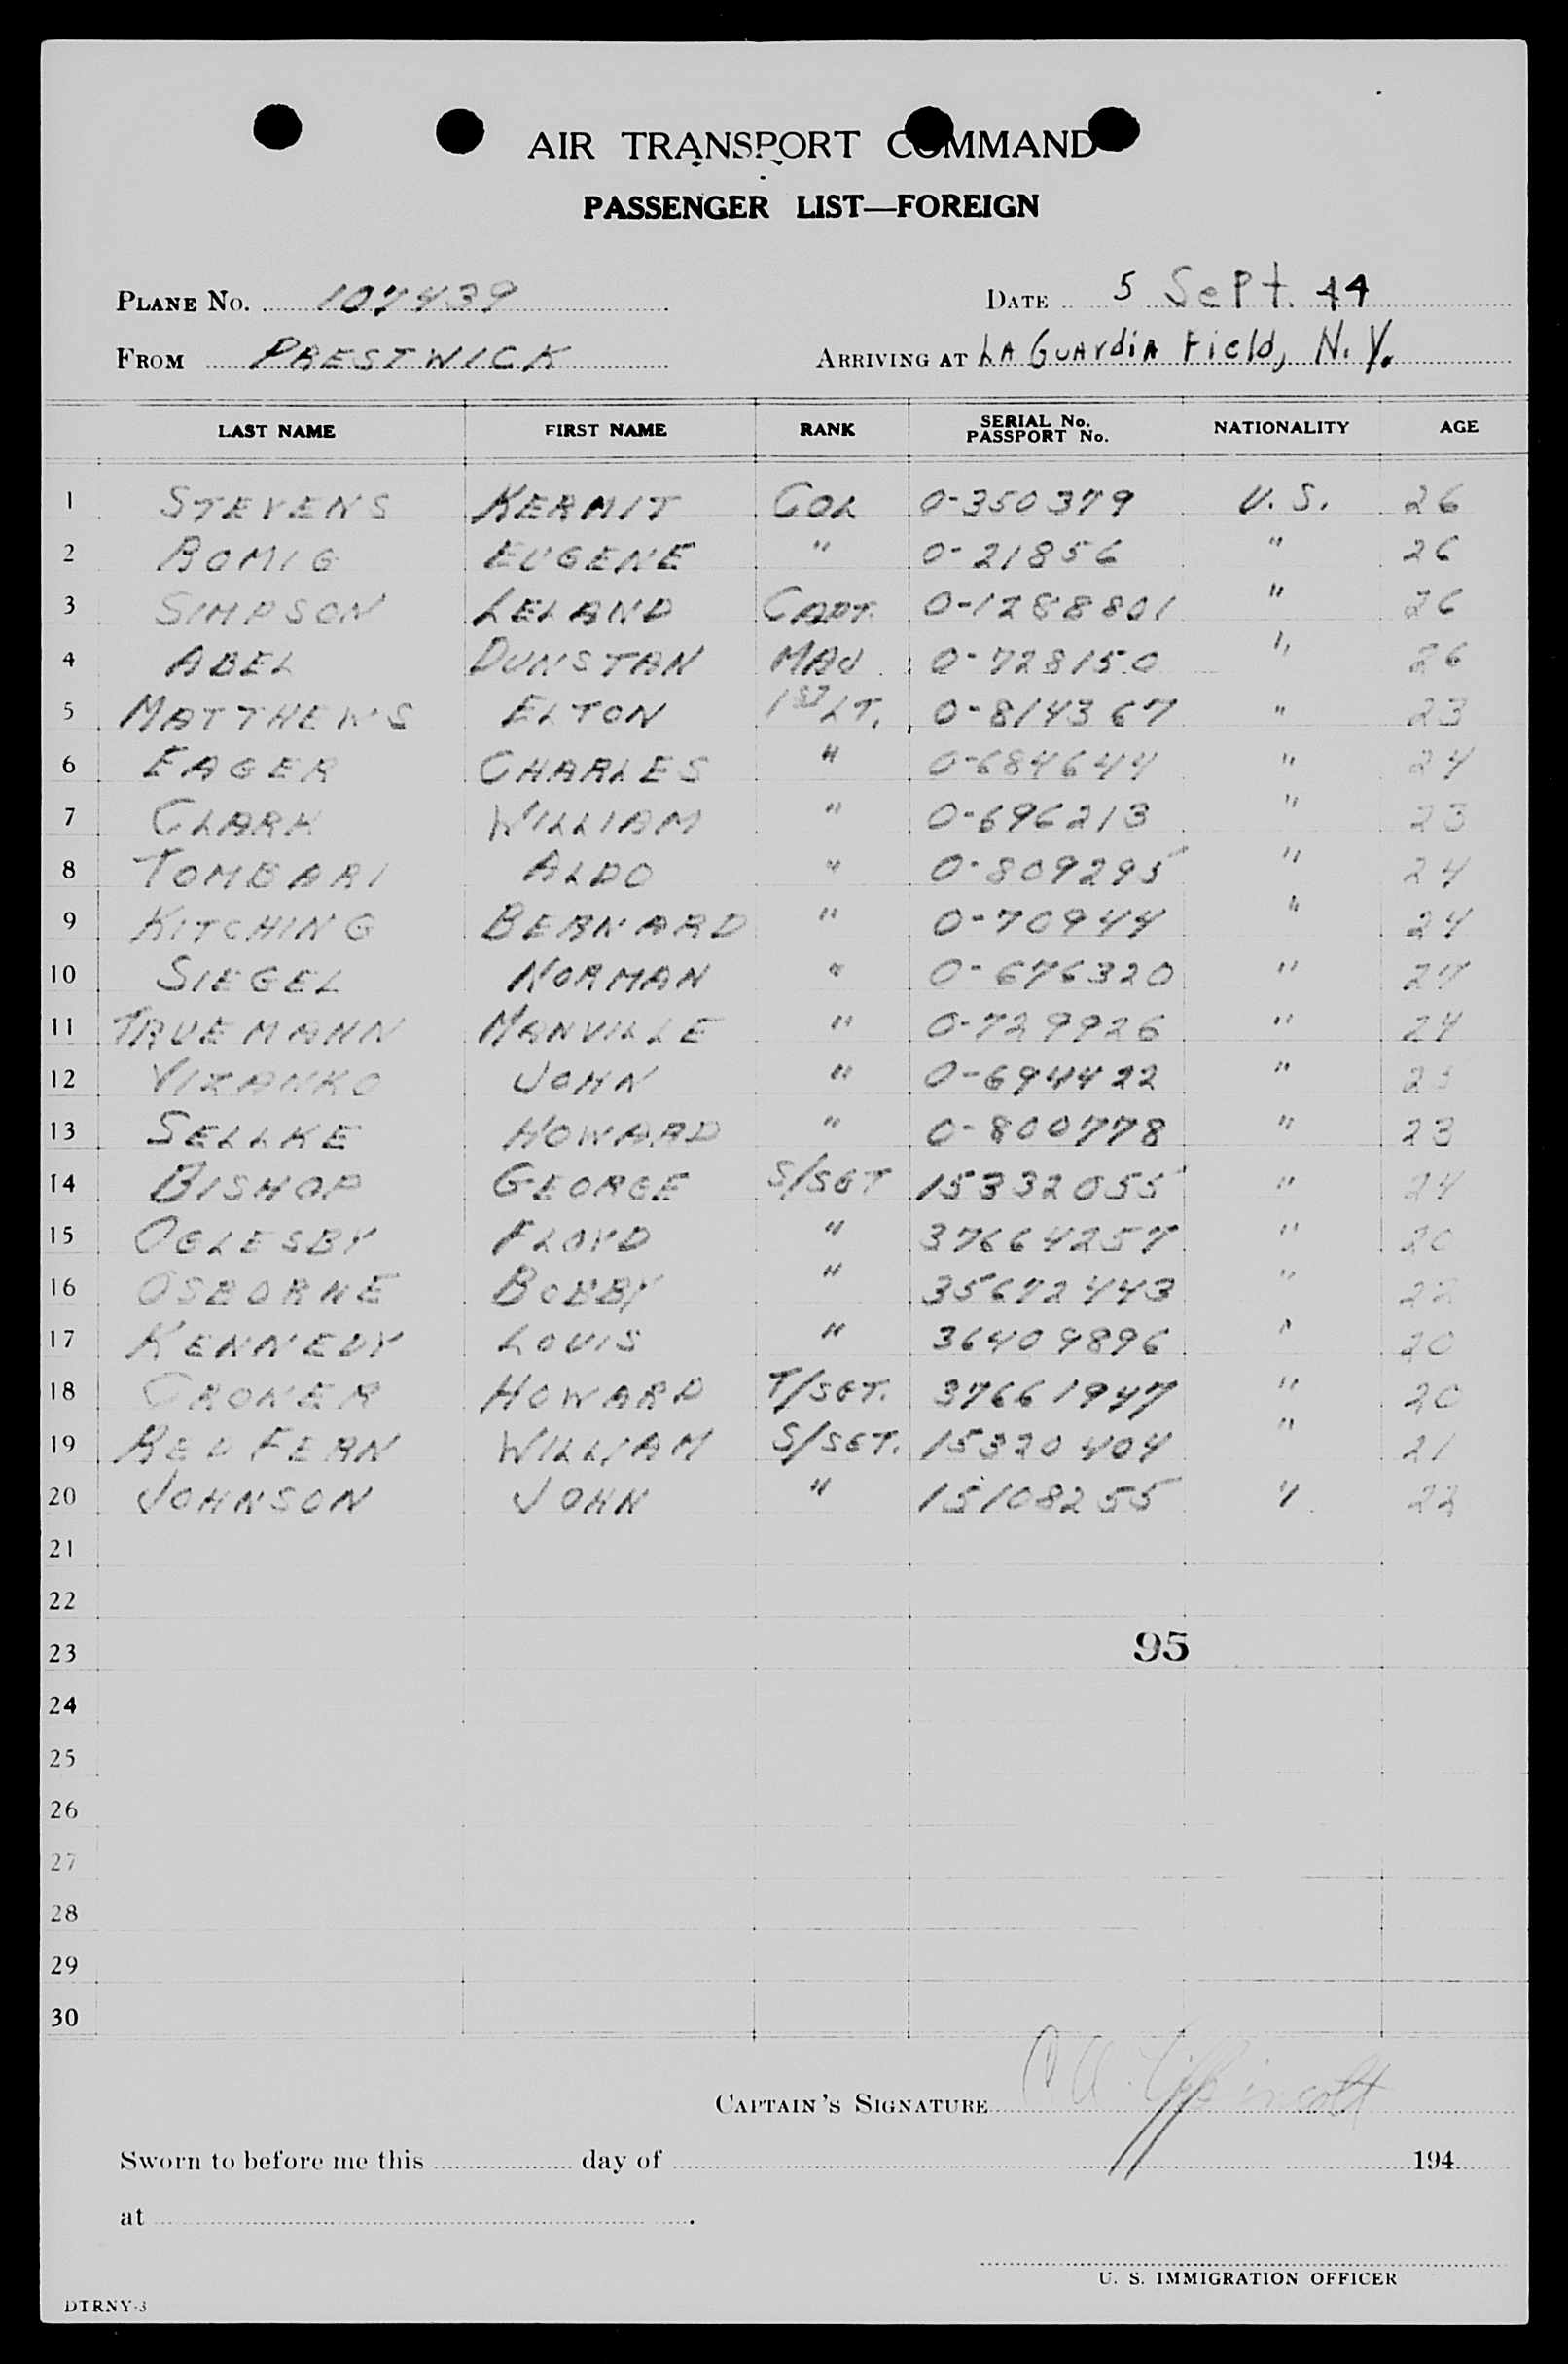 AIR TRANSPORT COMMAND
PASSENGER LIST—FOREIGN
PLANE No. 107439 DATE 5 SEPT. 44
FROM PRESTWICK ARRIVING AT LA GUARDIA FIELD, N.Y.
LAST NAME FIRST NAME RANK SERIAL No. PASSPORT No. NATIONALITY AGE
1 STEVENS KERMIT COL 0-350379 U.S. 26
2 ROMIG EUGENE " 0-21856 " 26
3 SIMPSON LELAND CAPT. 0-1288801 " 26
4 ABEL DUNSTAN MAJ 0-728150 " 26
5 MATTHEWS ELTON 1ST LT. 0-814367 " 23
6 EAGER CHARLES " 0-684644 " 24
7 CLARK WILLIAM " 0-696213 " 23
8 TOMBARI ALDO " 0-809295 " 24
9 KITCHING BERNARD " 0-70944 " 24
10 SIEGEL NORMAN " 0-676320 " 24
11 TRUEMANN MANVILLE " 0-729926 " 24
12 JOHN " 0-694422 "
13 SELLKE HOWARD " 0-800778 " 23
14 BISHOP GEORGE S/SGT 15332055 " 24
15 OGLESBY FLOYD " 37664257 " 20
16 OSBORNE BOBBY " 35672443 " 22
17 KENNEDY LOUIS " 36409896 " 20
18 CRONER HOWARD T/SGT. 37661947 " 20
19 REDFERN WILLIAM S/SGT. 15320404 " 21
20 JOHNSON JOHN " 15108255 " 22
21
22
23 95
24
25
26
27
28
29
30
CAPTAIN'S SIGNATURE Lippincott
Sworn to before me this day of 194
at
U. S. IMMIGRATION OFFICER
DTRNY-3